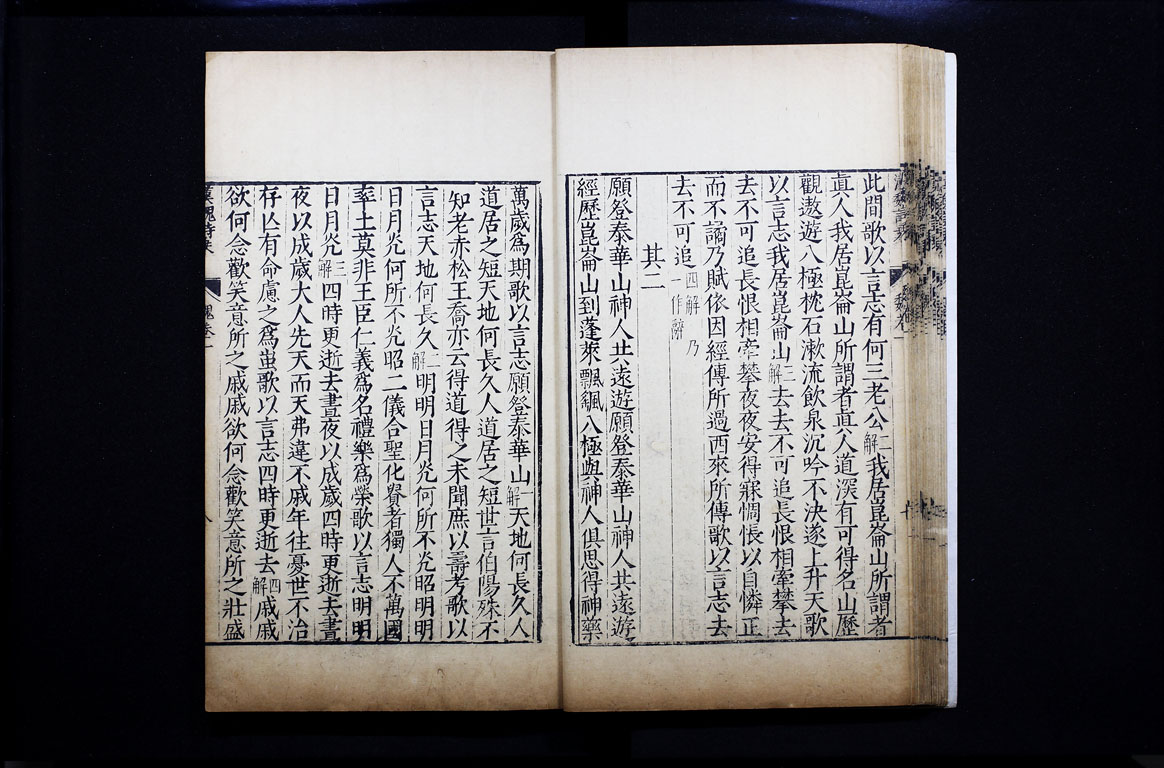 此間歌以言志有何三老公二解我居崑崙山所謂者
真人我居崑崙山所謂者真人道深有可得名山歷
觀遨遊八極枕石漱流飲泉沉吟不決遂上升天歌
以言志我居崑崙山三解去去不可追長恨相牽攀去
去不可追長恨相牽攀夜夜安得寐惆悵以自憐正
而不譎乃賦依因經傳所過西來所傳歌以言志去
去不可追四解乃一作辭
其二
願登泰華山神人共遠遊願登泰華山神人共遠遊
經歷崑崙山到蓬萊飄颻八極與神人俱思得神藥
萬歲爲期歌以言志願登泰華山一解天地何長久人
道居之短天地何長久人道居之短世言伯陽殊不
知老赤松王喬亦云得道得之未聞庶以壽考歌以
言志天地何長久二解明明日月光何所不光昭明明
日月光何所不光昭二儀合聖化貴者獨人不萬國
率土莫非王臣仁義爲名禮樂爲榮歌以言志明明
日月光三解四時更逝去晝夜以成歲四時更逝去晝
夜以成歲大人先天而天弗違不戚年往憂世不治
存亾有命慮之爲蚩歌以言志四時更逝去四解戚戚
欲何念歡笑意所之戚戚欲何念歡笑意所之壯盛
漢魏詩乘 魏卷一 八